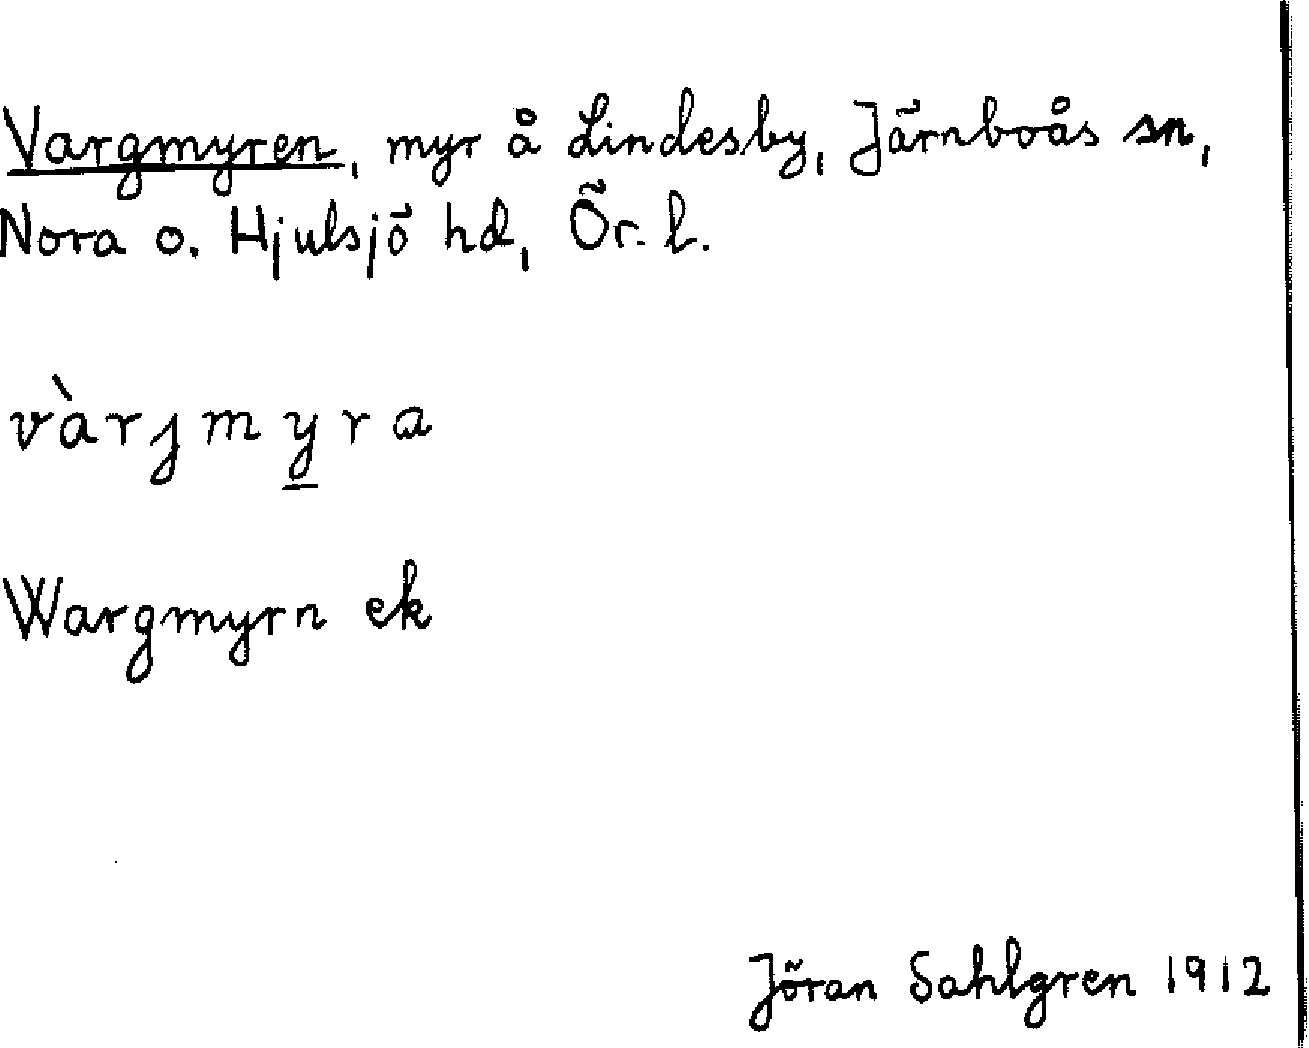 Vargmyren, myr å Lindesby, Järnboås sn,
Nora o. Hjulsjö hd, Ör. l.
vàrjmyra
Wargmyrn ek
Jöran Sahlgren 1912